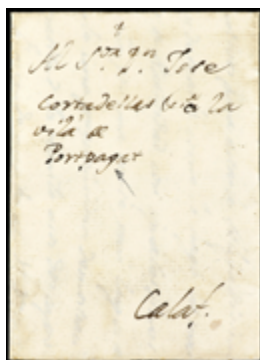 Al Sr. Dn. Jose
Cortadellas de la
vila de
Portpagat
Calaf.